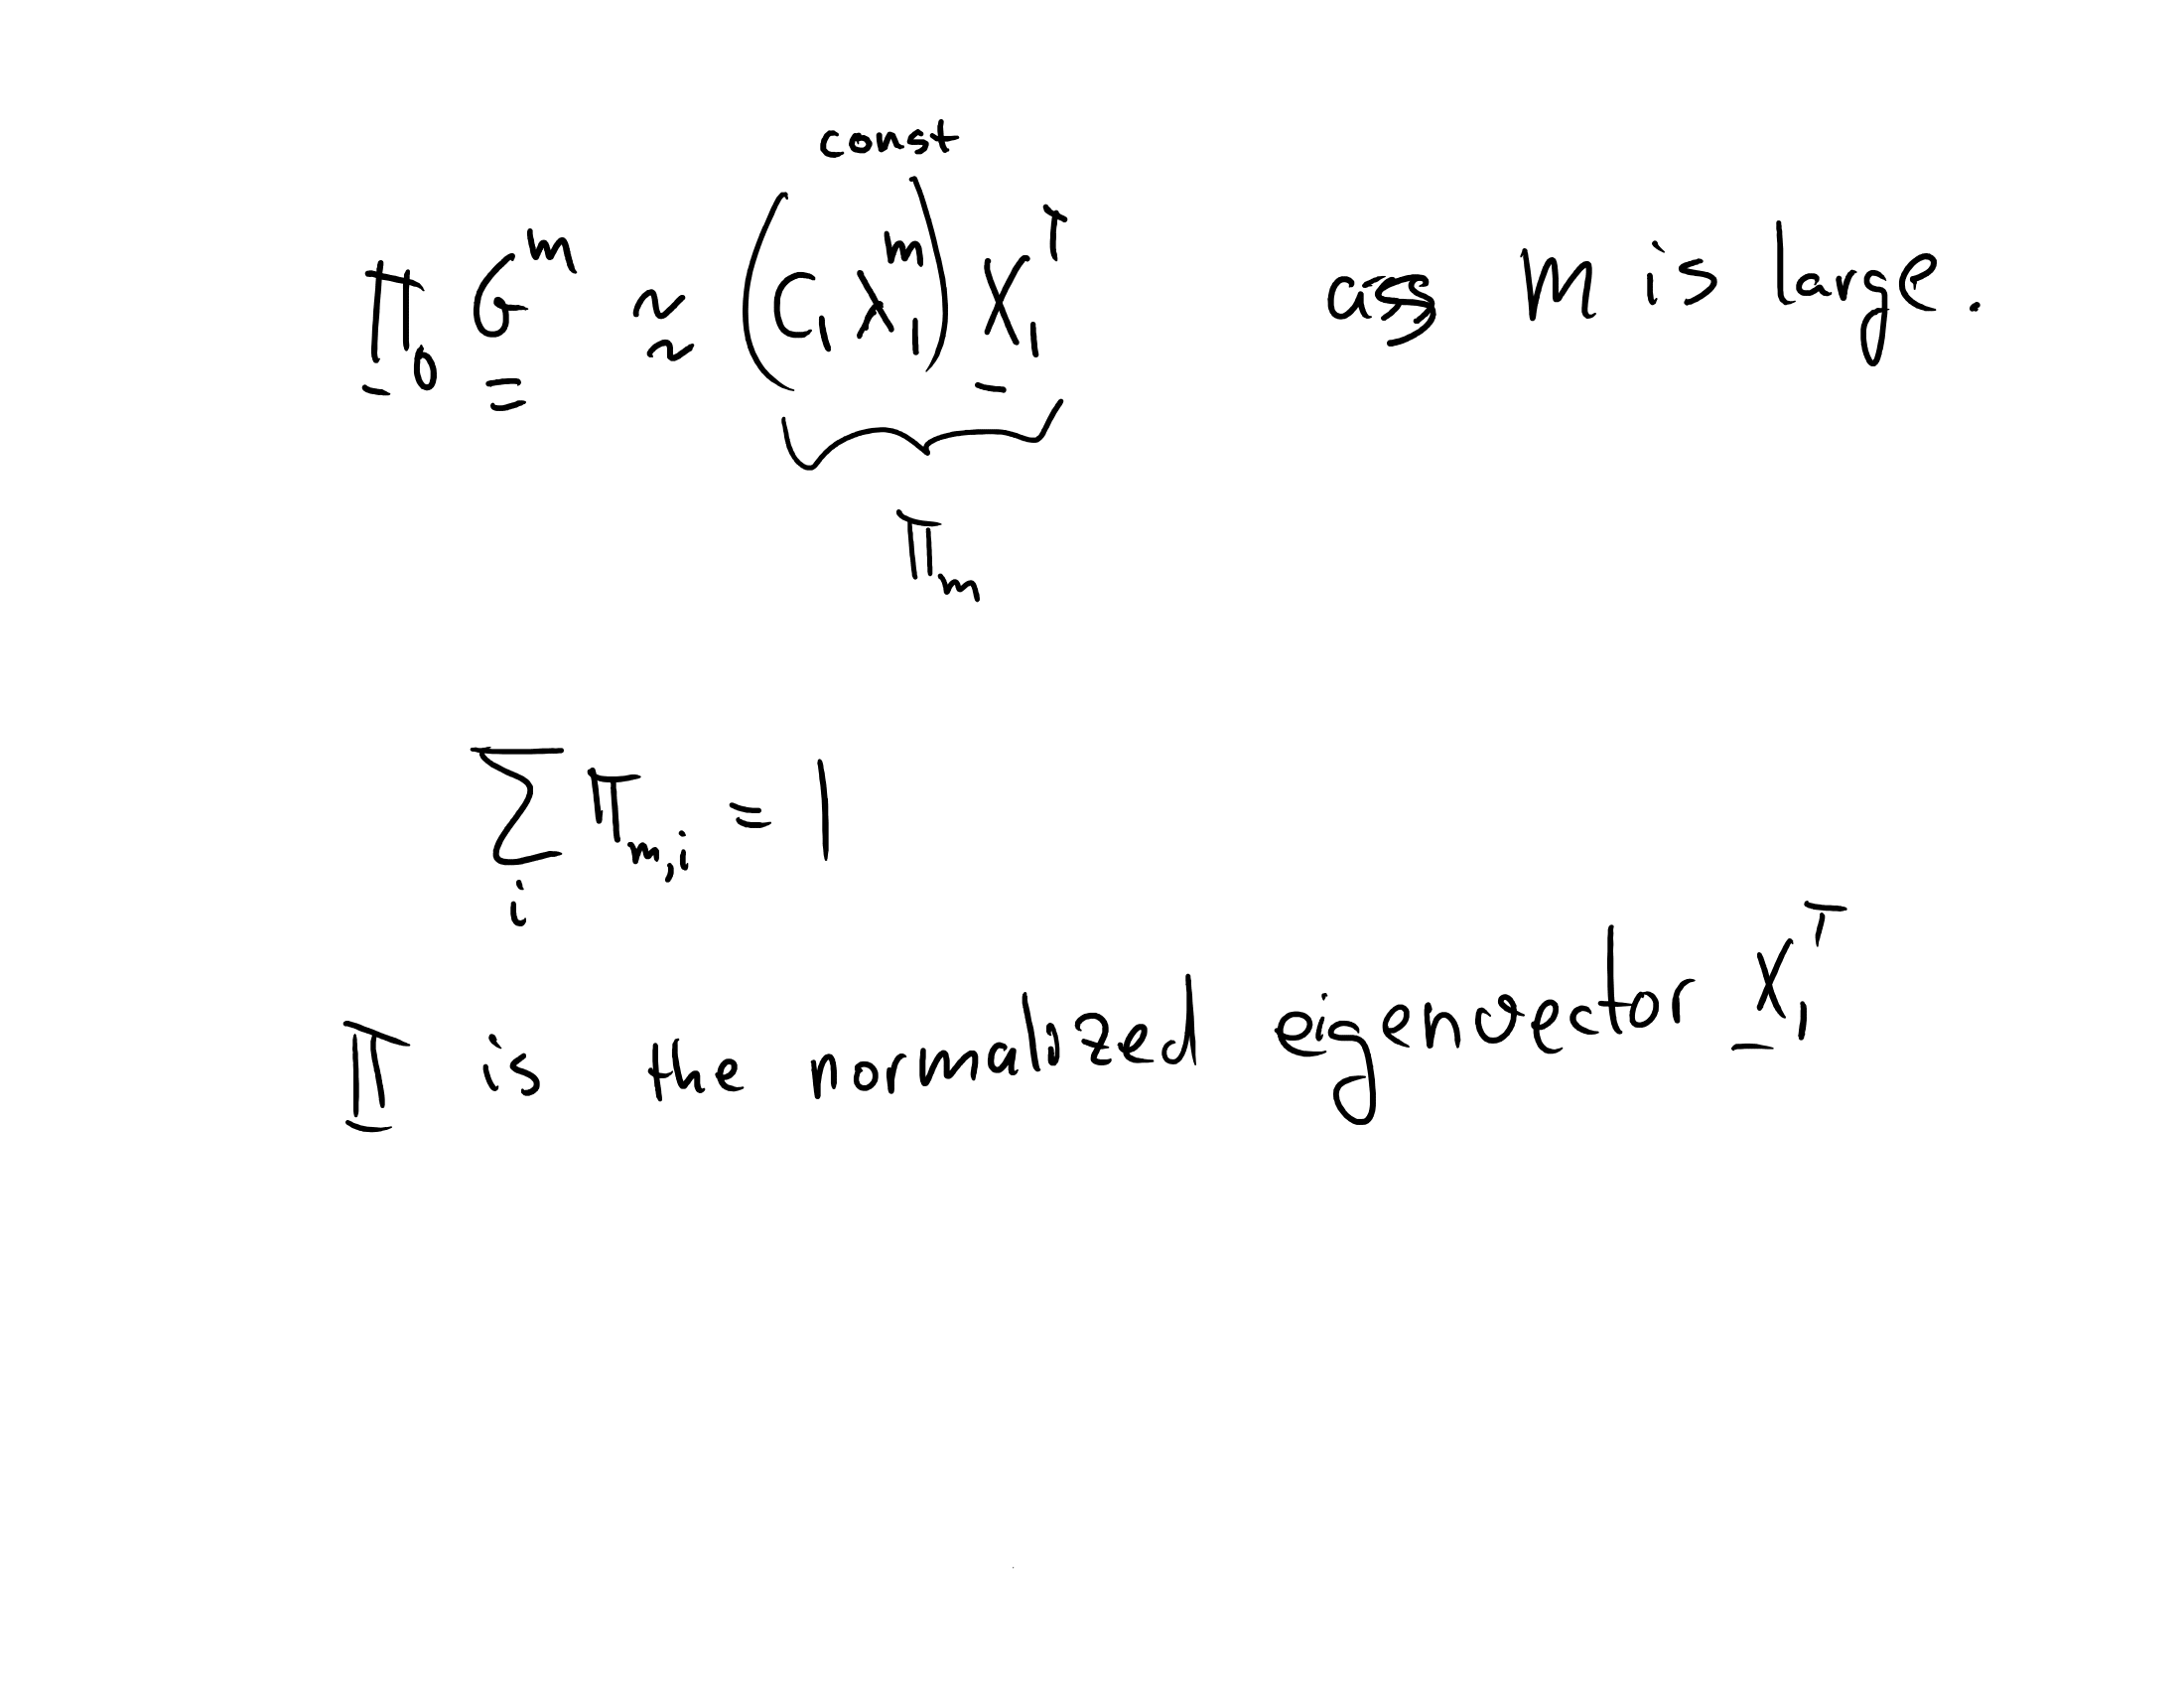 const
π₀ Gᵐ ≈ (C₁ λ₁ᵐ) X₁ᵀ as m is large.
πₘ
∑ πₘ,ᵢ = 1
i
π is the normalized eigenvector X₁ᵀ